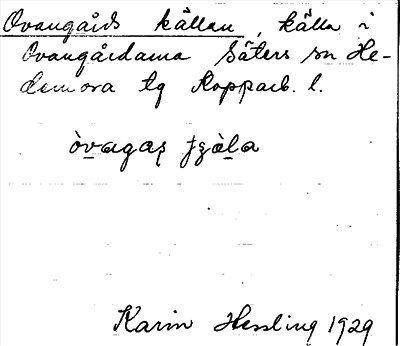 Ovangårds källan, källa i
Ovangårdarna Säters sn He-
demora tg Kopparb. l.
òvagaş tʂàla
Karin Hessling 1929